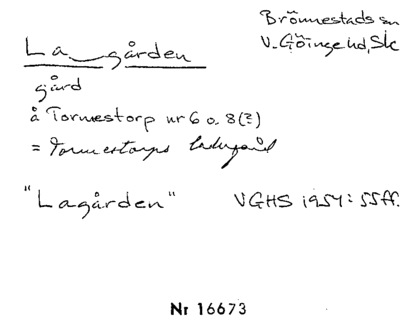 Brönnestads sn
V. Göinge hd, Sk
La_gården
gård
å Tormestorp nr 6 o. 8(?)
= Tormestorps ladugård
"Lagården" VGHS 1954: 55ff.
Nr 16673